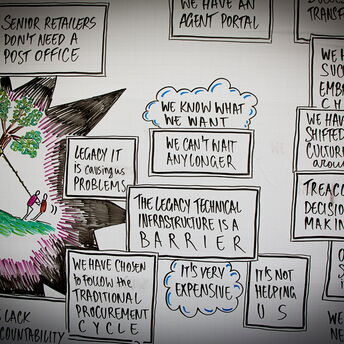 SENIOR RETAILERS
DON'T NEED A
POST OFFICE
WE HAVE AN
AGENT PORTAL
TRANSF
WE KNOW WHAT
WE WANT
WE CAN'T WAIT
ANYLONGER
WE H
SUC
EMB
CH
WE HAV
SHIFTED
CULTUR
arou
LEGACY IT
IS causing us
PROBLEMS
THE LEGACY TECHNICAL
INFRASTRUCTURE IS A
BARRIER
TREAC
DECISIO
MAKIN
WE HAVE CHOSEN
to FOLLOW THE
TRADITIONAL
PROCUREMENT
CYCLE
IT'S VERY
EXPENSIVE
IT'S NOT
HELPING
US
LACK
CCOUNTABILITY